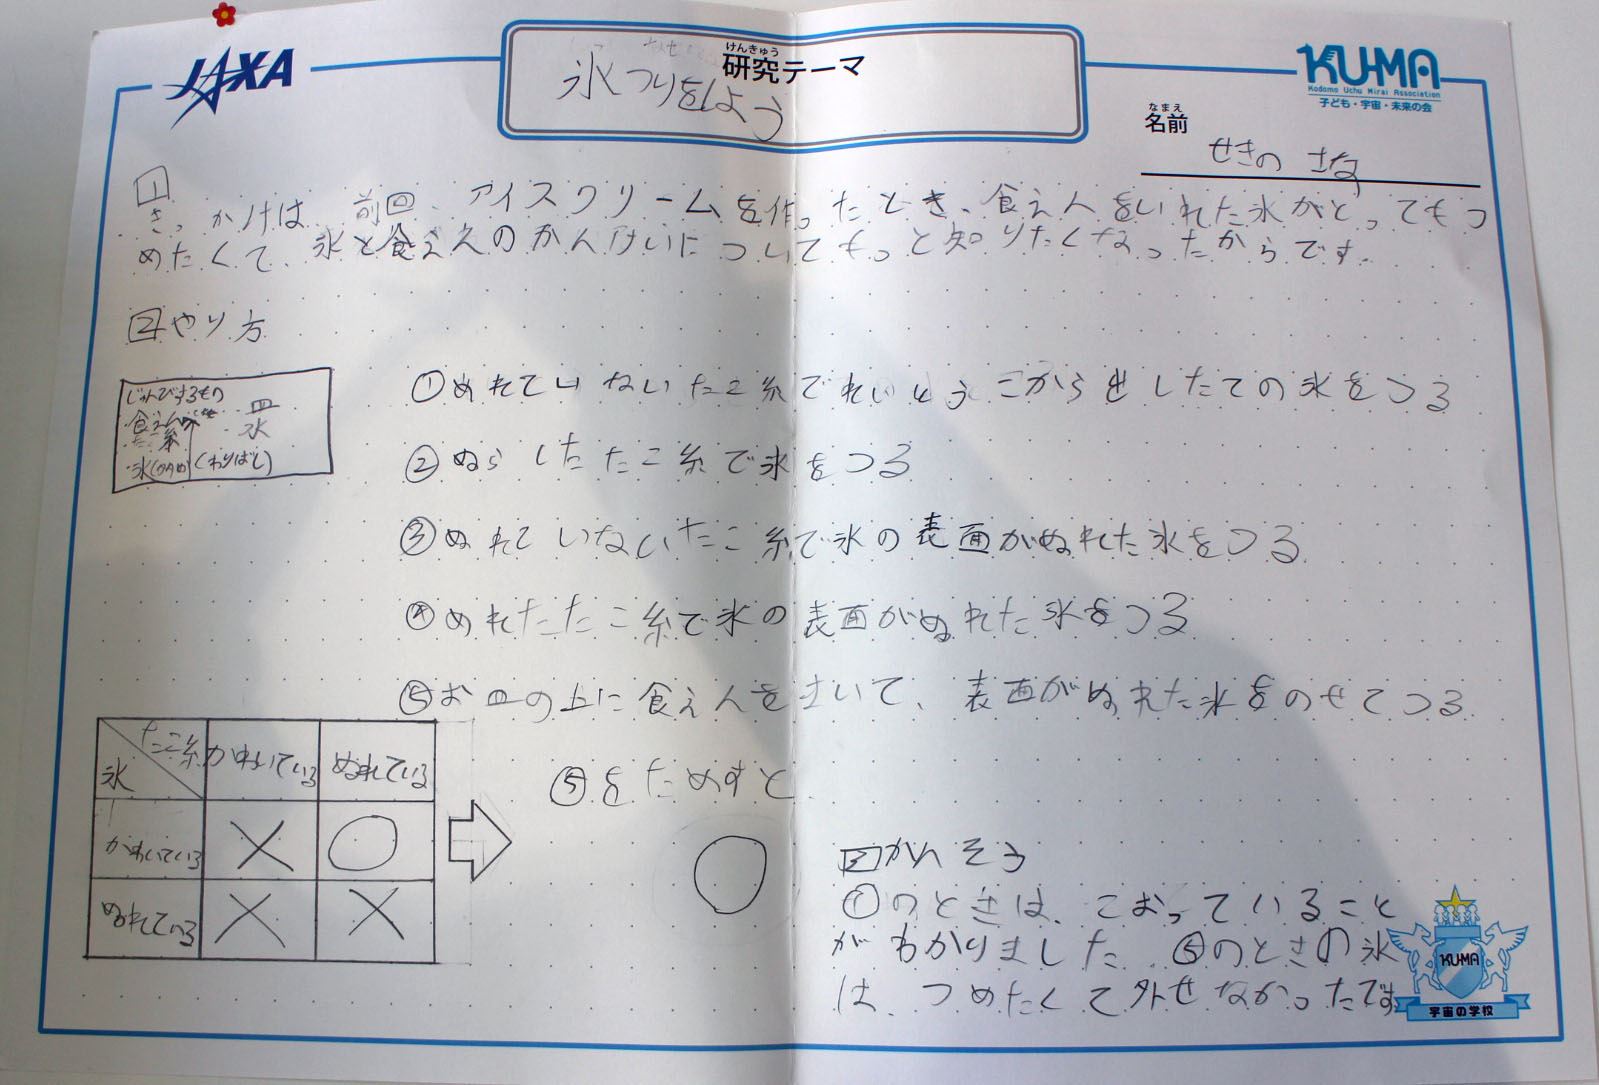 JAXA
けんきゅう
研究テーマ
氷つりをしよう
KU-MA
Kodomo Uchu Mirai Association
子ども・宇宙・未来の会
なまえ
名前
せきの さな
1
きっかけは、前回、アイスクリームを作ったとき、食え人をいれた氷がとってもつ
めたくて、氷と食ええのかんけいについてもっと知りたくなったからです。
2 やり方
じゅんびするもの
食えん
皿
たこ糸
氷
(わりばし)
①ぬれていないたこ糸でれいとうこから出したての氷をつる
②ぬらしたたこ糸で氷をつる
③ぬれていないたこ糸で氷の表面がぬれた氷をつる
④ぬれたたこ糸で氷の表面がぬれた氷をつる
⑤お皿の上に食え人をまいて、表面がぬれた氷をのせてつる
たこ糸 かわいている ぬれている
氷
かわいている × ○
ぬれている × ×
⑤をためすと
○
3 かんそう
①のときは、こおっていること
がもかりました。⑤のときの氷
は、つめたくて外せなかったです
KU-MA
宇宙の学校